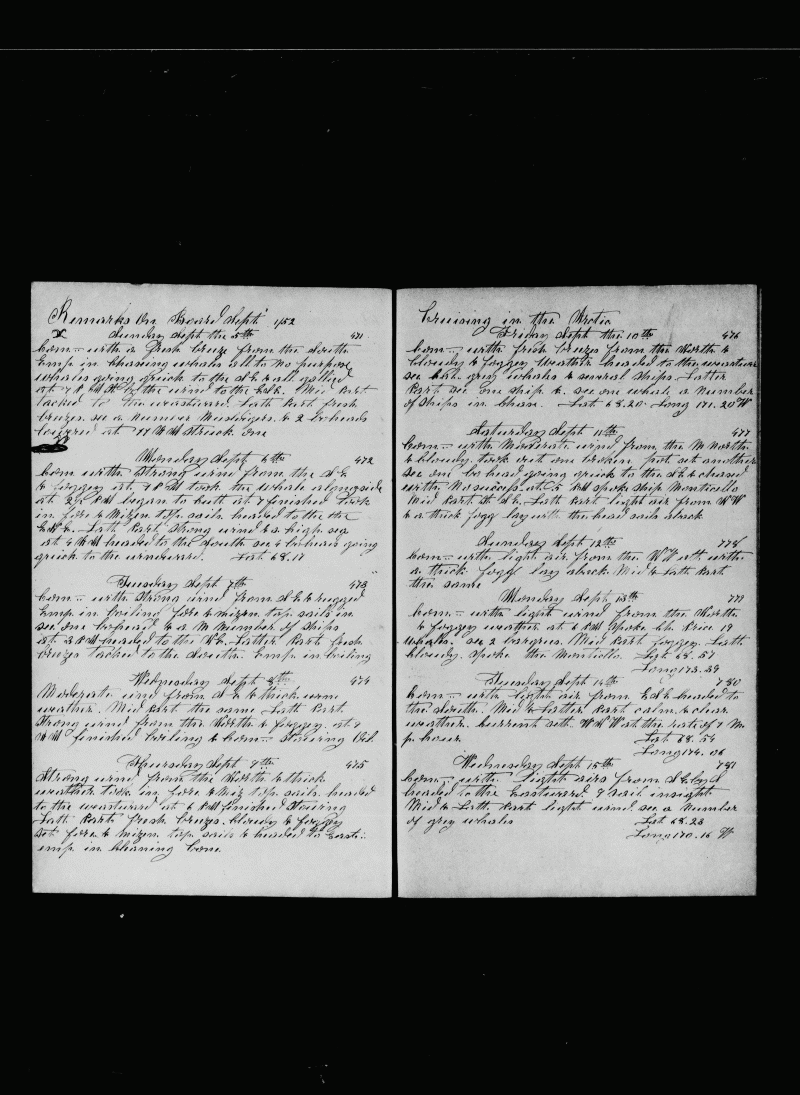 Remarks On Board Sept 1852
Sunday Sept the 5th 471
Com— with a fresh breeze from the South
Emp in chasing whales all to no purpose
whales going quick to the S E & all gallied
at 7 P M the wind to the E S E. Mid Part
tacked to the westward Lath Part fresh
breezes. see a Number Muscles & 2 boheads
lowered at 11 A M Struck one
Monday Sept 6th 472
Com with Strong wind from the S E
& foggy at 1 P M took the whale alongside
at 2 P M began to cutt at 7 finished took
in fore & Mizen top sails headed to the
E N E. Lath Part Strong wind & a high sea
at 4 A M headed to the South see 4 boheads going
quick to the windward. Lat 68.17
Tuesday Sept 7th 473
Com— with Strong wind from S E & rugged
Emp in boiling fore & mizen top sails in
see one bohead & a Number of Ships
at 3 P M headed to the N E. Latter Part fresh
breezes tacked to the South. Emp in boiling
Wednesday Sept 8th 474
Moderate wind from S E & thick warm
weather. Mid Part the same Lath Part
Strong wind from the North & foggy. at 9
A M finished boiling & Com— Stowing Oil
Thursday Sept 9th 475
Strong wind from the North & thick
weather took in fore & miz top sails headed
to the westward at 6 P M finished Stowing
Lath Part fresh breezes. bloudy & foggy
Set fore & mizen top sails & headed to East
emp in bleaning bone
Cruising in the Arctic
Friday Sept the 10th 476
Com— with fresh breezes from the North &
bloudy & foggy weather headed to the westward
see grey whales & several Ships. Latter
Part see one Ship & see one whale a Number
of Ships in chase. Lat 68.20 Long 171.20 W
Saturday Sept 11th 477
Com— with Moderate wind from the N North
& bloudy. took out one broken put set another
see one bo head going quick to the S E & chased
with No success at 5 P M spoke Ship Monticello
Mid Part S E. Lath Part light air from W W
& a thick fogg lay with the head sails aback
Sunday Sept 12th 778
Com— with light air from the W with
a thick fogg lay aback Mid & Lath Part
the same
Monday Sept 13th 779
Com— with light wind from the North
& foggy weather at 6 P M spoke Sh Price 19
whales. see 2 bargues. Mid Part foggy Lath
bloudy. spoke the Monticello Lat 68.57
Long 173.39
Tuesday Sept 14th 780
Com— with light air from E S E headed to
the South. Mid & Latter Part calm & clear
weather. burrent sett W N W at the rate of 1 M
p. hour Lat 68.54
Long 174.06
Wednesday Sept 15th 781
Com— with light airs from S E by S
headed to the Eastward 9 sail insight
Mid & Lath Part light wind see a Number
of grey whales Lat 68.23
Long 170.16 W